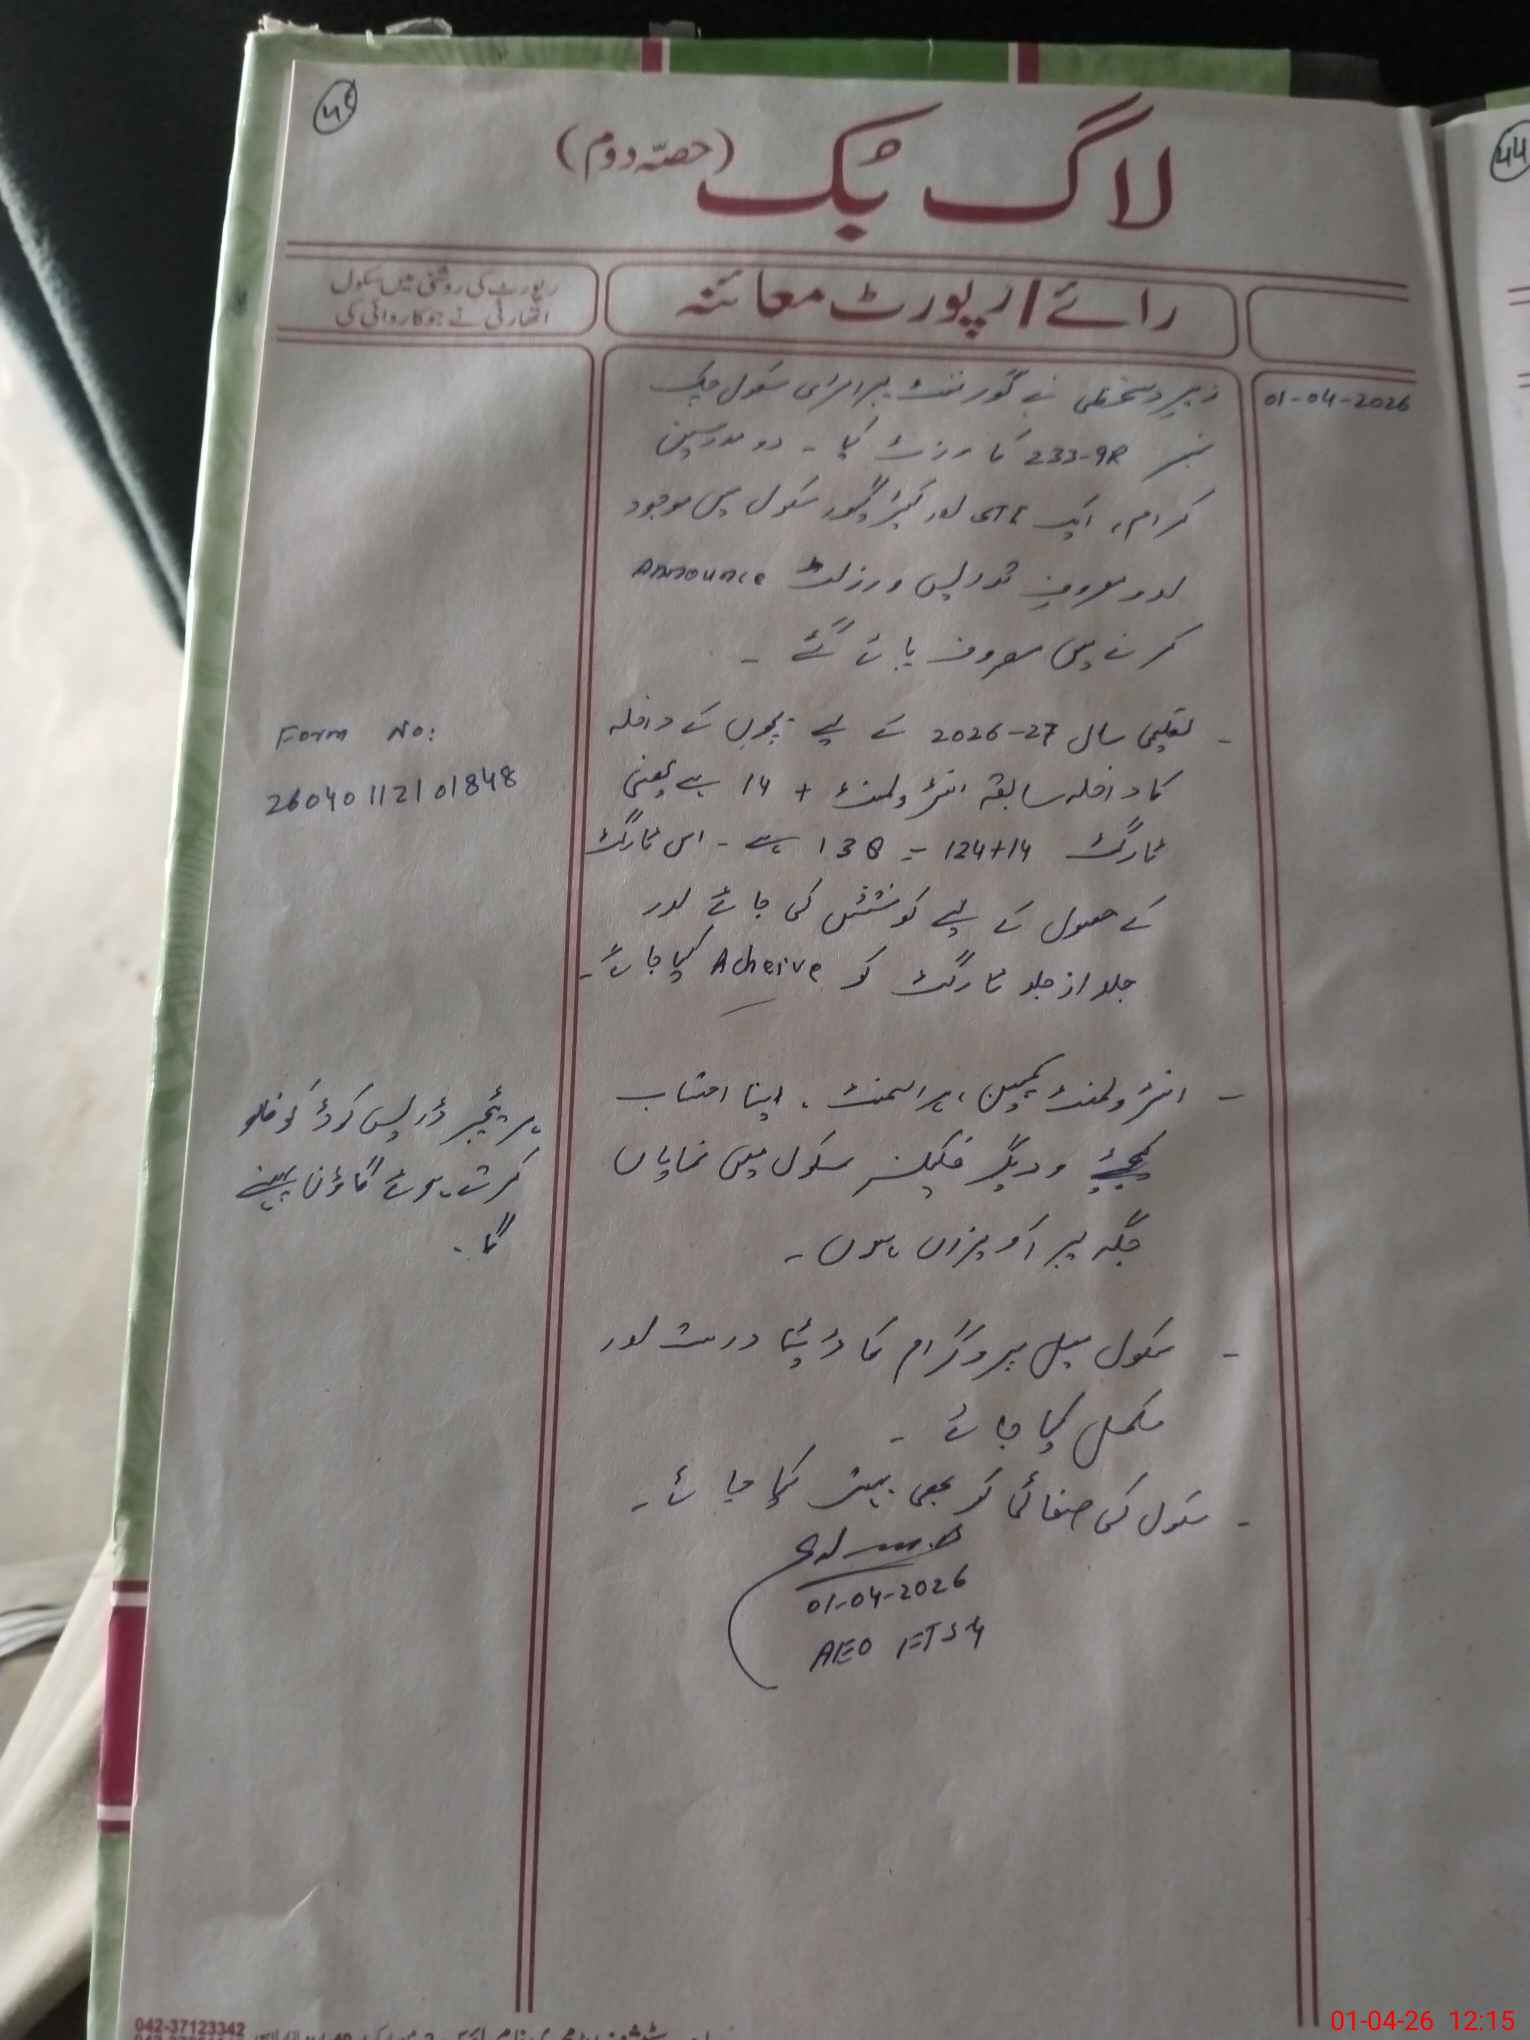 لاگ بُک (حصّہ دوم)
رائے / رپورٹ معائنہ
رپورٹ کی روشنی میں سکول
اتھارٹی نے جو کاروائی کی
01-04-2026
زیرِ دستخطی نے گورنمنٹ پرائمری سکول چک
نمبر 233-9R کا وزٹ کیا - دو مدرسین
کرام، ایک STI اور کیئر گیور سکول میں موجود
اور مصروفِ تدریس و رزلٹ Announce
کرنے میں مصروف پائے گئے -
- تعلیمی سال 2026-27 کے لیے بچوں کے داخلہ
کا داخلہ سابقہ انرولمنٹ + 14 ہے یعنی
ٹارگٹ 124+14 = 138 ہے - اس ٹارگٹ
کے حصول کے لیے کوشش کی جائے اور
جلد از جلد ٹارگٹ کو Acheive کیا جائے -
- انرولمنٹ کمپین، ہراسمنٹ، اپنا احتساب
کیجئے و دیگر فلیکسز سکول میں نمایاں
جگہ پر آویزاں ہوں -
- سکول میل پروگرام کا ڈیٹا درست اور
مکمل کیا جائے -
- سکول کی صفائی کو بھی بہتر کیا جائے -
01-04-2026
AEO
Form No:
26040112101848
ہر ٹیچر ڈریس کوڈ کو فالو
کرتے ہوئے گاؤن پہنے
گا -
44
042-37123342
01-04-26 12:15